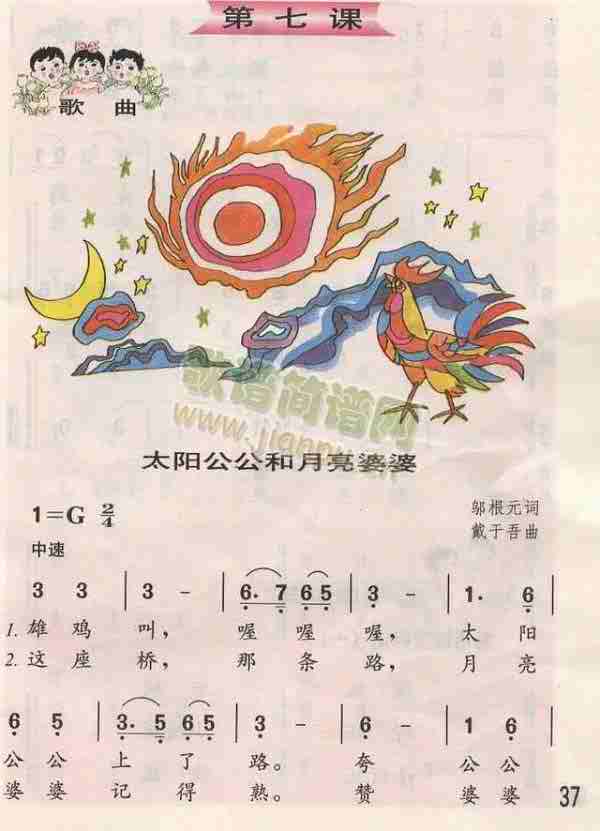 第七课
歌曲
歌谱简谱网
太阳公公和月亮婆婆
1=G 2/4
邬根元词
戴于吾曲
中速
3 3 | 3 - | 6. 7 6 5 | 3 - | 1. 6 |
1. 雄 鸡 叫， 喔 喔 喔， 太 阳
2. 这 座 桥， 那 条 路， 月 亮
6 5 | 3. 5 6 5 | 3 - | 6 - | 1 6 |
公 公 上 了 路。 夸 公 公
婆 婆 记 得 熟。 赞 婆 婆
37